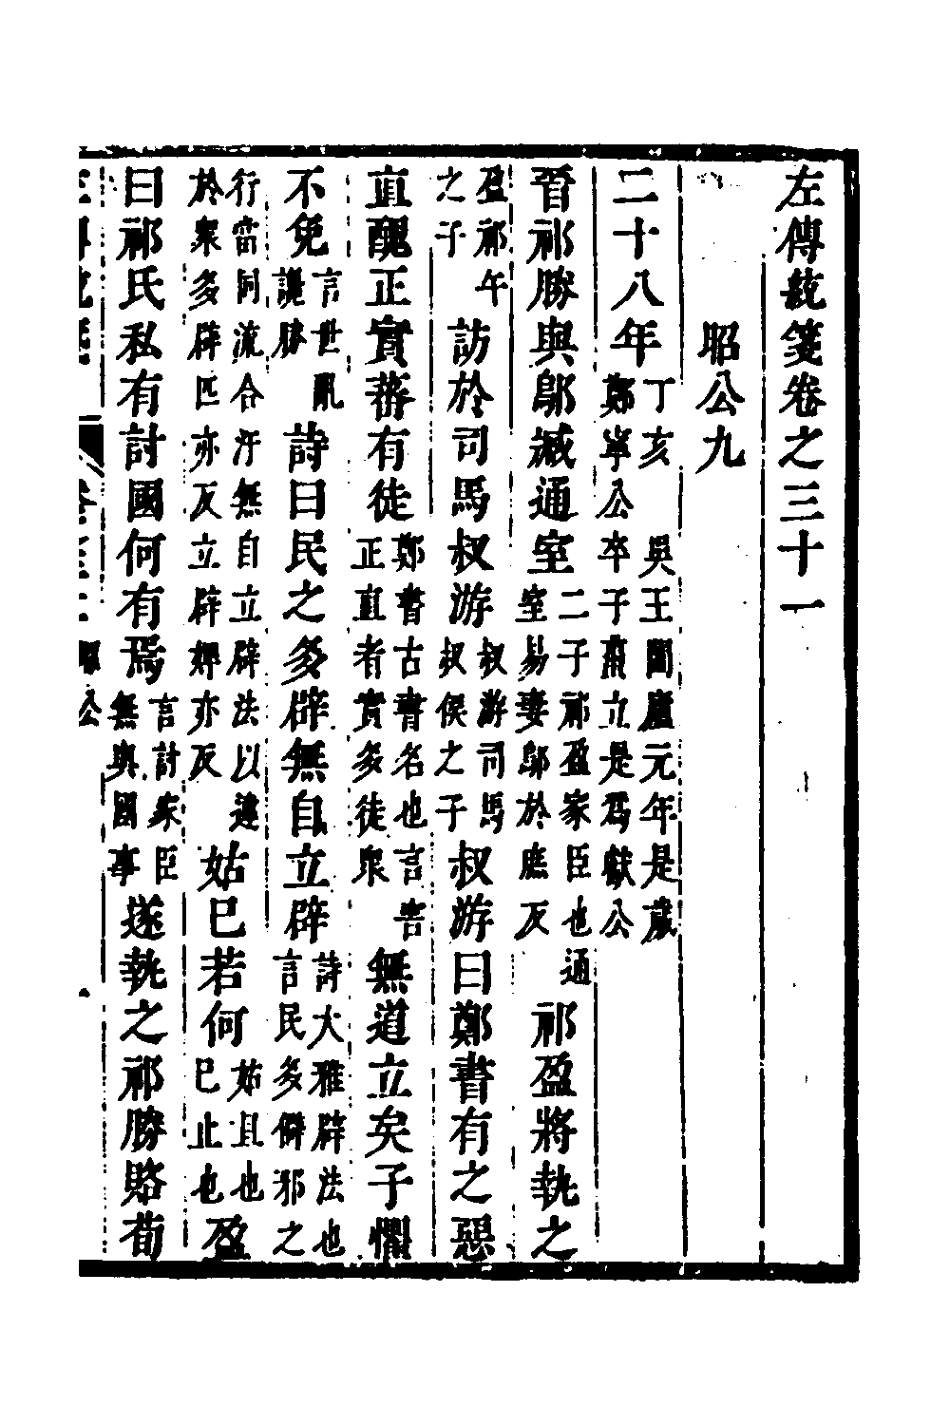 左傳統箋卷之三十一
昭公九
二十八年丁亥 吳王闔廬元年是歲鄭寧公卒子肅立是爲獻公
晉祁勝與鄔臧通室二子祁盈家臣也通室易妻鄔於庶反祁盈將執之
盈祁午之子訪於司馬叔游叔游司馬叔侯之子叔游曰鄭書有之惡
直醜正實蕃有徒鄭書古書名也言害正直者實多徒衆無道立矣子懼
不免言世亂讒勝詩曰民之多辟無自立辟詩大雅辟法也言民多僻邪之
行當同流合汙無自立辟法以違於衆多辟匹亦反立辟婢亦反姑已若何姑且也已止也盈
曰祁氏私有討國何有焉言討家臣無與國事遂執之祁勝賂荀